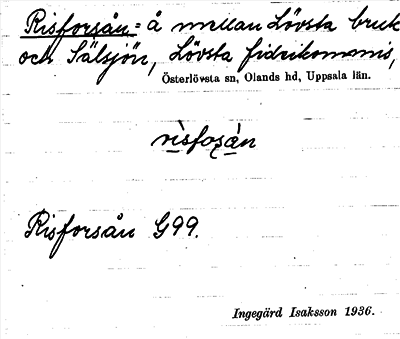 Risforsån = å mellan Lövsta bruk
och Sälsjön, Lövsta fideikommis,
Österlövsta sn, Olands hd, Uppsala län.
rìsfoṣån
Risforsån G99.
Ingegärd Isaksson 1936.